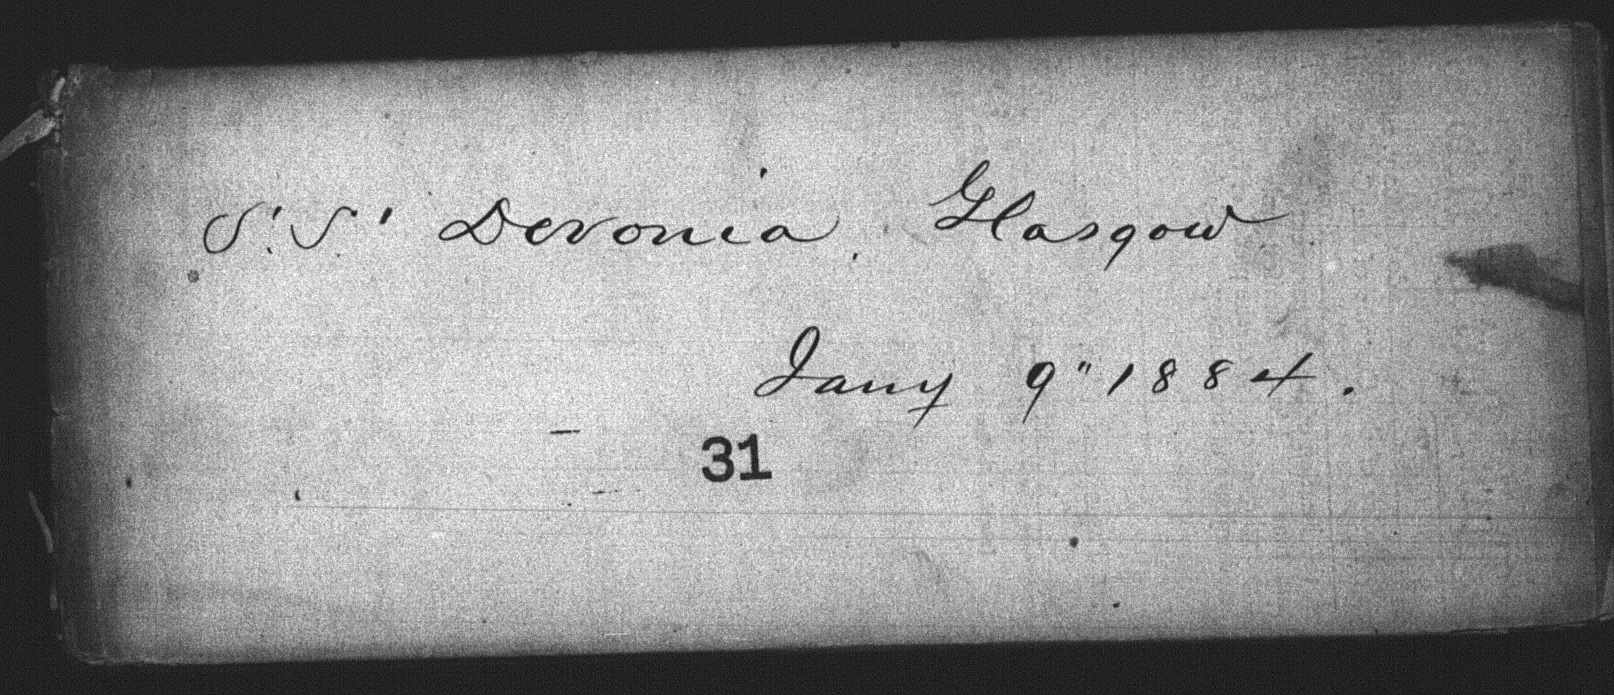 S.S. Devonia. Glasgow
Jany 9" 1884.
31